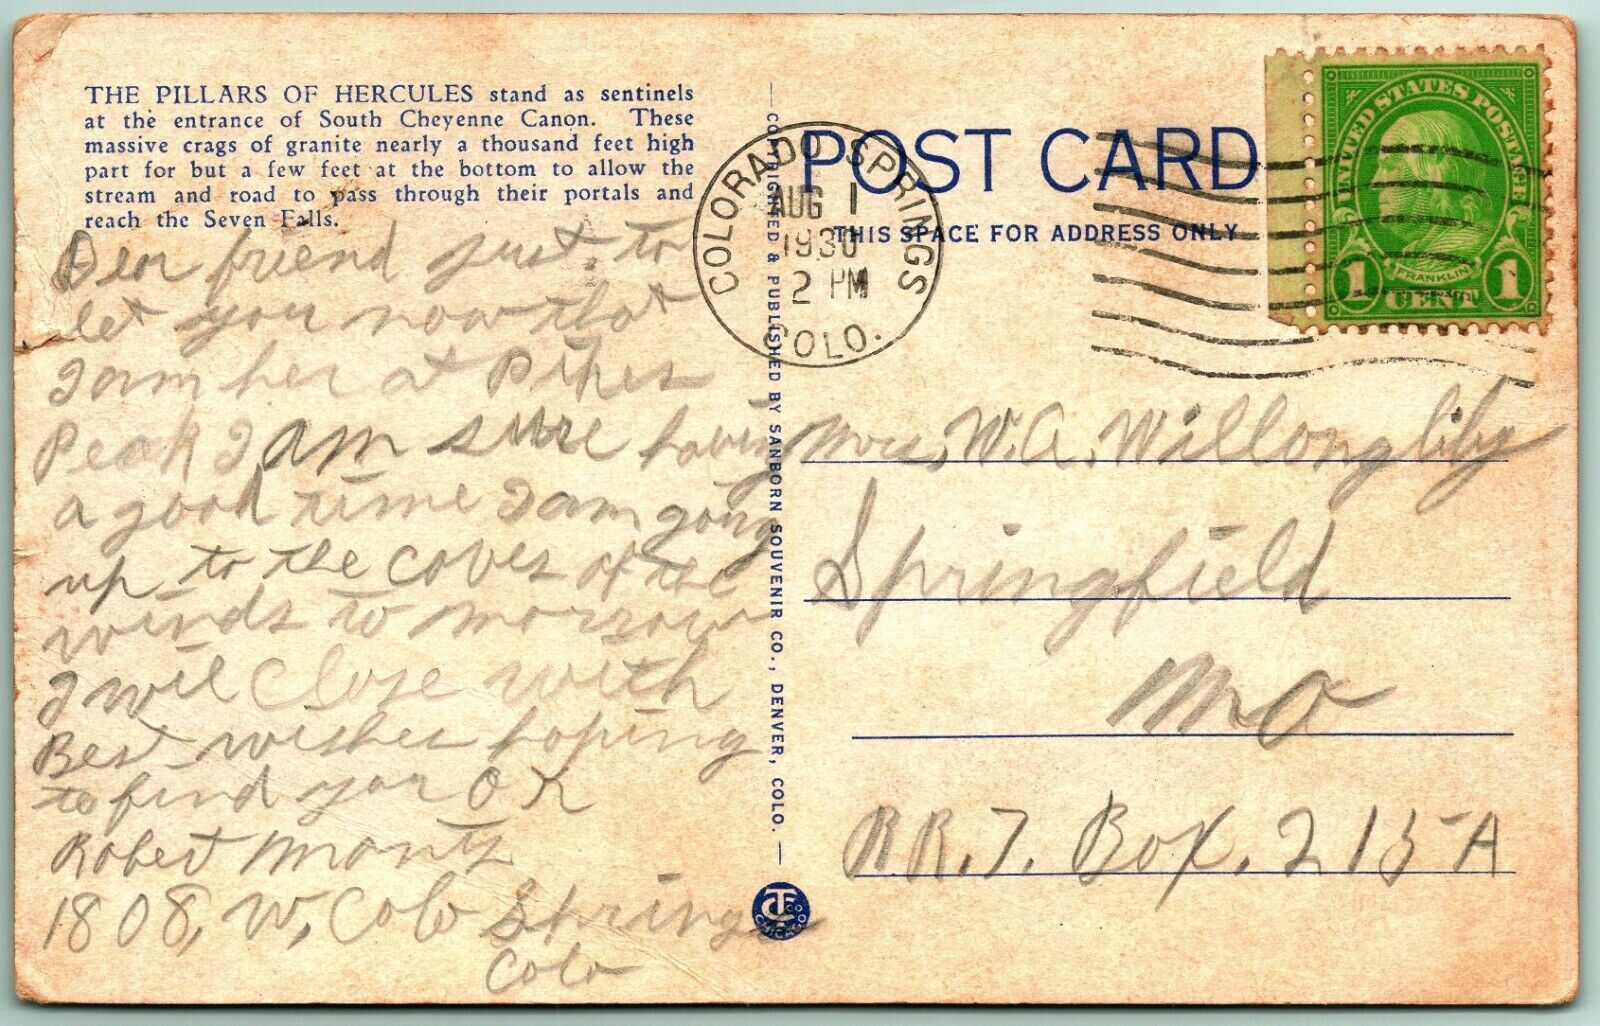 THE PILLARS OF HERCULES stand as sentinels
at the entrance of South Cheyenne Canon. These
massive crags of granite nearly a thousand feet high
part for but a few feet at the bottom to allow the
stream and road to pass through their portals and
reach the Seven Falls.
Dear friend just to
let you now that
I am her at Pikes
Peak I am sure having
a good time I am going
up to the coves of the
winds to morrow
I wil Close with
Best wishes hoping
to find you O K
Robert
1808, W, Colo Springs
Colo
COPYRIGHTED & PUBLISHED BY SANBORN SOUVENIR CO., DENVER, COLO.
CT CO
CHICAGO
POST CARD
THIS SPACE FOR ADDRESS ONLY
COLORADO SPRINGS
AUG 1
1930
2 PM
COLO.
UNITED STATES POSTAGE
FRANKLIN
1 CENT 1
Mrs, W. A. Willongliby
Springfield
Mo
RR. 7. Box. 215-A